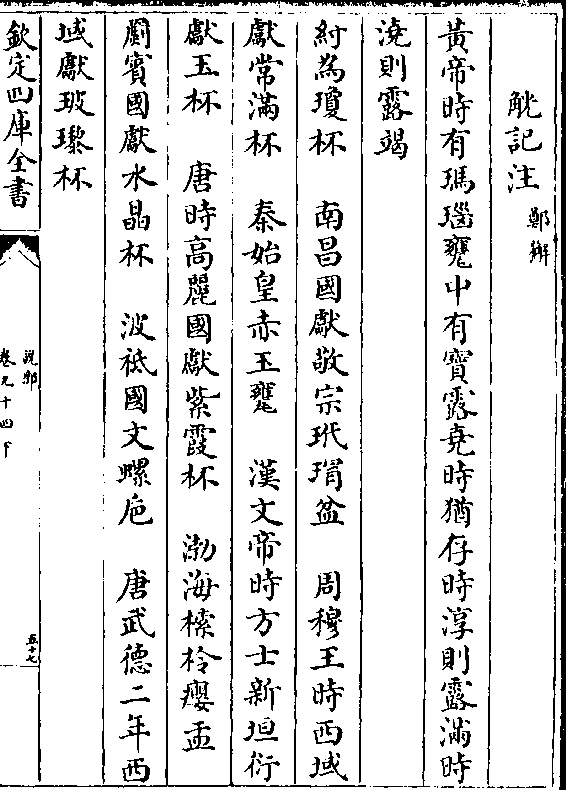 觥記注 鄭獬
黃帝時有瑪瑙甕中有寶露堯時猶存時淳則露滿時
澆則露竭
紂為瓊杯　南昌國獻敬宗玳瑁盆　周穆王時西域
獻常滿杯　秦始皇赤玉甕　漢文帝時方士新垣衍
獻玉杯　唐時高麗國獻紫霞杯　渤海榡柃癭盂
罽賓國獻水晶杯　波祗國文螺巵　唐武德二年西
域獻玻瓈杯
欽定四庫全書
說郛
卷九十四下
五十七